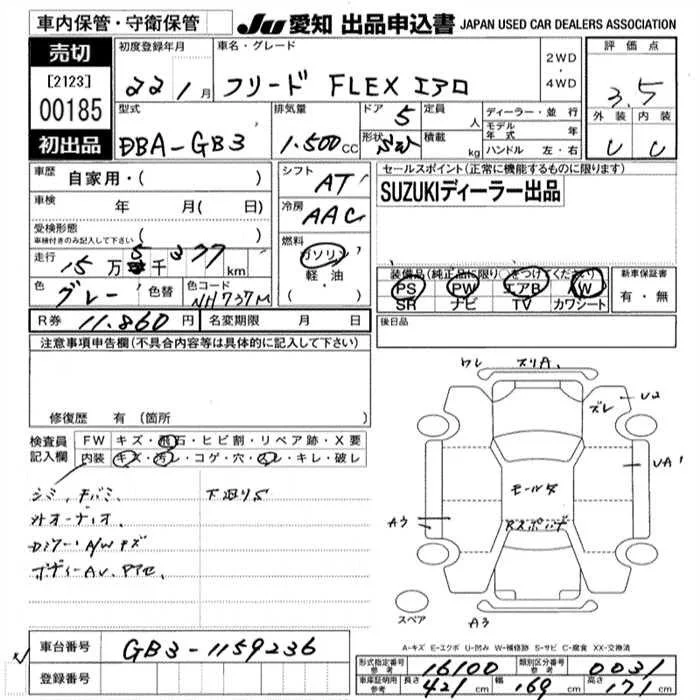 車内保管・守衛保管
JU 愛知 出品申込書 JAPAN USED CAR DEALERS ASSOCIATION
売切
[2123]
00185
初出品
初度登録年月
22年 1月
車名・グレード
フリード FLEX エアロ
2WD
・
4WD
評価点
3.5
外装 内装
C C
型式
DBA-GB3
排気量
1.500cc
ドア 5
形状
定員 人
積載 kg
ディーラー・並行
モデル年式 年
ハンドル 左・右
車歴 自家用・( )
車検 年 月( 日)
受検形態
車検付きのみ記入して下さい
走行 15万 5千 377km
色 グレー 色替
色コード NH737M
シフト AT
冷房 AAC
燃料
ガソリン
軽・油
( ・ )
セールスポイント(正常に機能するものに限ります)
SUZUKIディーラー出品
装備品(純正品に限り○をつけてください)
PS PW エアB W
SR ナビ TV カワシート
新車保証書
有・無
R券 11.860円
名変期限 月 日
後日品
注意事項申告欄(不具合内容等は具体的に記入して下さい)
修復歴 有(箇所
検査員記入欄
FW キズ・飛石・ヒビ割・リペア跡・X要
内装 キズ・汚レ・コゲ・穴・スレ・キレ・破レ
シミ、キバミ 下廻りS
外オーディオ
A/Wキズ
ボディーAU、
ワレ スリA、
ズレ
U2
UA1
モール欠
A3
A3
スペア
A-キズ E-エクボ U-凹み W-補修跡 S-サビ C-腐食 XX-交換済
車台番号 GB3-1159236
登録番号
形式指定番号 参考 16100
類別区分番号 参考 0031
車庫証明用 参考 長さ 421cm 幅 169cm 高さ 171cm